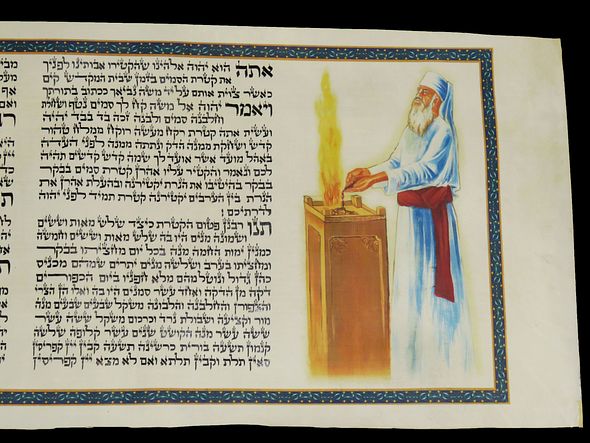 אתה הוא יהוה אלהינו שהקטירו אבותינו לפניך
את קטרת הסמים בזמן שבית המקדש קים
כאשר צוית אותם על יד משה נביאך ככתוב בתורתך
ויאמר יהוה אל משה קח לך סמים נטף ושחלת
וחלבנה סמים ולבנה זכה בד בבד יהיה
ועשית אתה קטרת רקח מעשה רוקח ממלח טהור
קדש ושחקת ממנה הדק ונתתה ממנה לפני העדה
באהל מועד אשר אועד לך שמה קדש קדשים תהיה
לכם ונאמר והקטיר עליו אהרן קטרת סמים בבקר
בבקר בהיטיבו את הנרת יקטירנה ובהעלת אהרן את
הנרת בין הערבים יקטירנה קטרת תמיד לפני יהוה
לדרתיכם
תנו רבנן פטום הקטרת כיצד שלש מאות וששים
ושמונה מנים היו בה שלש מאות וששים וחמשה
כמנין ימות החמה מנה בכל יום מחציתו בבקר
ומחציתו בערב ושלשה מנים יתרים שמהם מכניס
כהן גדול ונוטל מהם מלא חפניו ביום הכפורים
דקה מן הדקה ואחד עשר סמנים היו בה ואלו הן הצרי
והצפורן והחלבנה והלבונה משקל שבעים שבעים מנה
מור וקציעה ושבולת נרד וכרכום משקל ששה עשר
ששה עשר מנה הקושט שנים עשר קלופה שלשה
קנמון תשעה בורית כרשינה תשעה קבין יין קפריסין
סאין תלת וקבין תלתא ואם לא מצא יין קפריסין